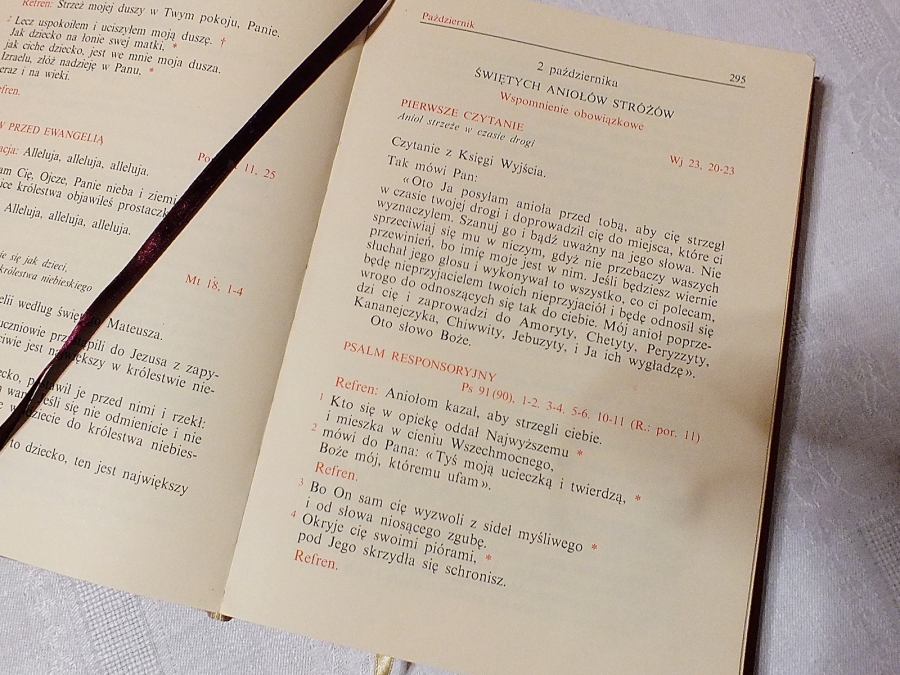 Refren: Strzeż mojej duszy w Twym pokoju, Panie.
2 Lecz uspokoiłem i uciszyłem moją duszę. †
Jak dziecko na łonie swej matki, *
jak ciche dziecko, jest we mnie moja dusza.
Izraelu, złóż nadzieję w Panu, *
teraz i na wieki.
Refren.
W PRZED EWANGELIĄ
11, 25
Alleluja, alleluja, alleluja.
Cię, Ojcze, Panie nieba i ziemi
królestwa objawiłeś prostaczk
Alleluja, alleluja, alleluja.
się jak dzieci,
królestwa niebieskiego
Mt 18, 1-4
według Mateusza.
uczniowie do Jezusa z zapy-
jest największy w królestwie nie-
je przed nimi i rzekł:
się nie odmienicie i nie
do królestwa niebies-
to dziecko, ten jest największy
Październik
295
2 października
ŚWIĘTYCH ANIOŁÓW STRÓŻÓW
Wspomnienie obowiązkowe
PIERWSZE CZYTANIE
Wj 23, 20-23
Anioł strzeże w czasie drogi
Czytanie z Księgi Wyjścia.
Tak mówi Pan:
«Oto Ja posyłam anioła przed tobą, aby cię strzegł
w czasie twojej drogi i doprowadził cię do miejsca, które ci
wyznaczyłem. Szanuj go i bądź uważny na jego słowa. Nie
sprzeciwiaj się mu w niczym, gdyż nie przebaczy waszych
przewinień, bo imię moje jest w nim. Jeśli będziesz wiernie
słuchał jego głosu i wykonywał to wszystko, co ci polecam,
będę nieprzyjacielem twoich nieprzyjaciół i będę odnosił się
wrogo do odnoszących się tak do ciebie. Mój anioł poprze-
dzi cię i zaprowadzi do Amoryty, Chetyty, Peryzzyty,
Kananejczyka, Chiwwity, Jebuzyty, i Ja ich wygładzę».
Oto słowo Boże.
PSALM RESPONSORYJNY
Ps 91(90), 1-2. 3-4, 5-6, 10-11 (R.: por. 11)
Refren: Aniołom kazał, aby strzegli ciebie.
1 Kto się w opiekę oddał Najwyższemu *
i mieszka w cieniu Wszechmocnego,
2 mówi do Pana: «Tyś moją ucieczką i twierdzą, *
Boże mój, któremu ufam».
Refren.
3 Bo On sam cię wyzwoli z sideł myśliwego *
i od słowa niosącego zgubę.
4 Okryje cię swoimi piórami, *
pod Jego skrzydła się schronisz.
Refren.